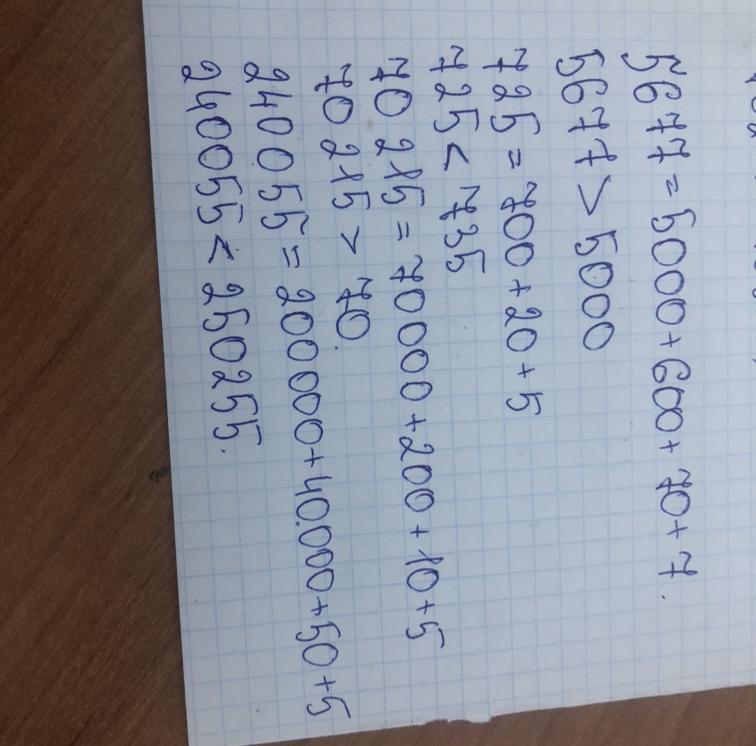 5677 = 5000 + 600 + 70 + 7.
5677 > 5000
725 = 700 + 20 + 5
725 < 735
70 215 = 70 000 + 200 + 10 + 5
70 215 > 70.
240 055 = 200 000 + 40.000 + 50 + 5
240055 < 250255.